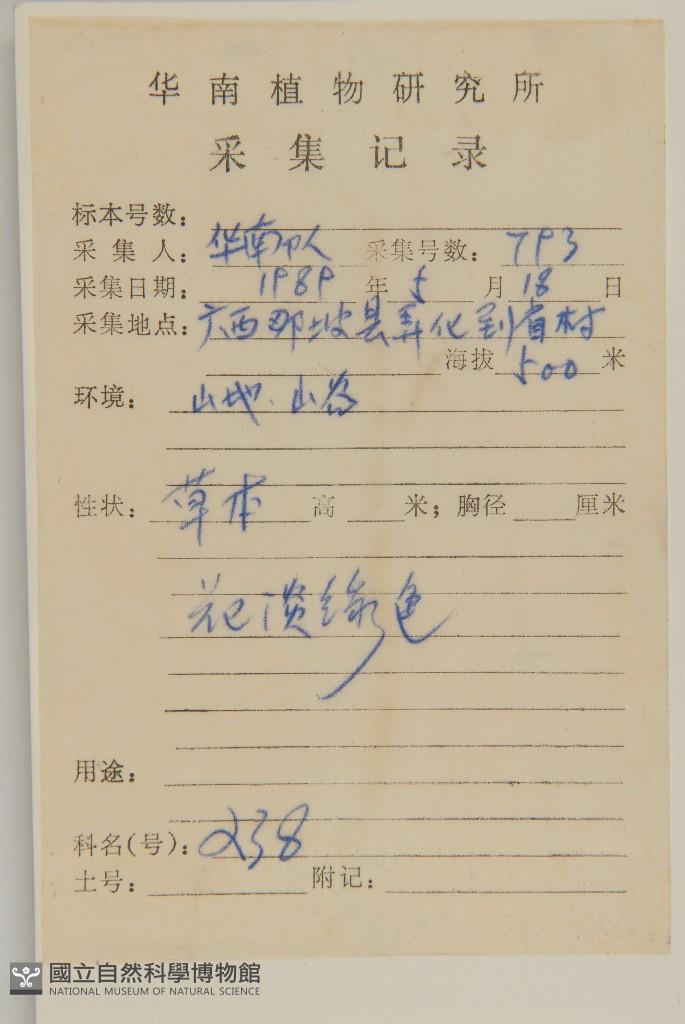 华南植物研究所
采集记录
标本号数：
采集人：华南队 采集号数：793
采集日期：1989年5月18日
采集地点：广西那坡县弄化到省村
海拔500米
环境：山地、山谷
性状：草本 高 米；胸径 厘米
花淡绿色
用途：
科名(号)：238
土号： 附记：
國立自然科學博物館
NATIONAL MUSEUM OF NATURAL SCIENCE